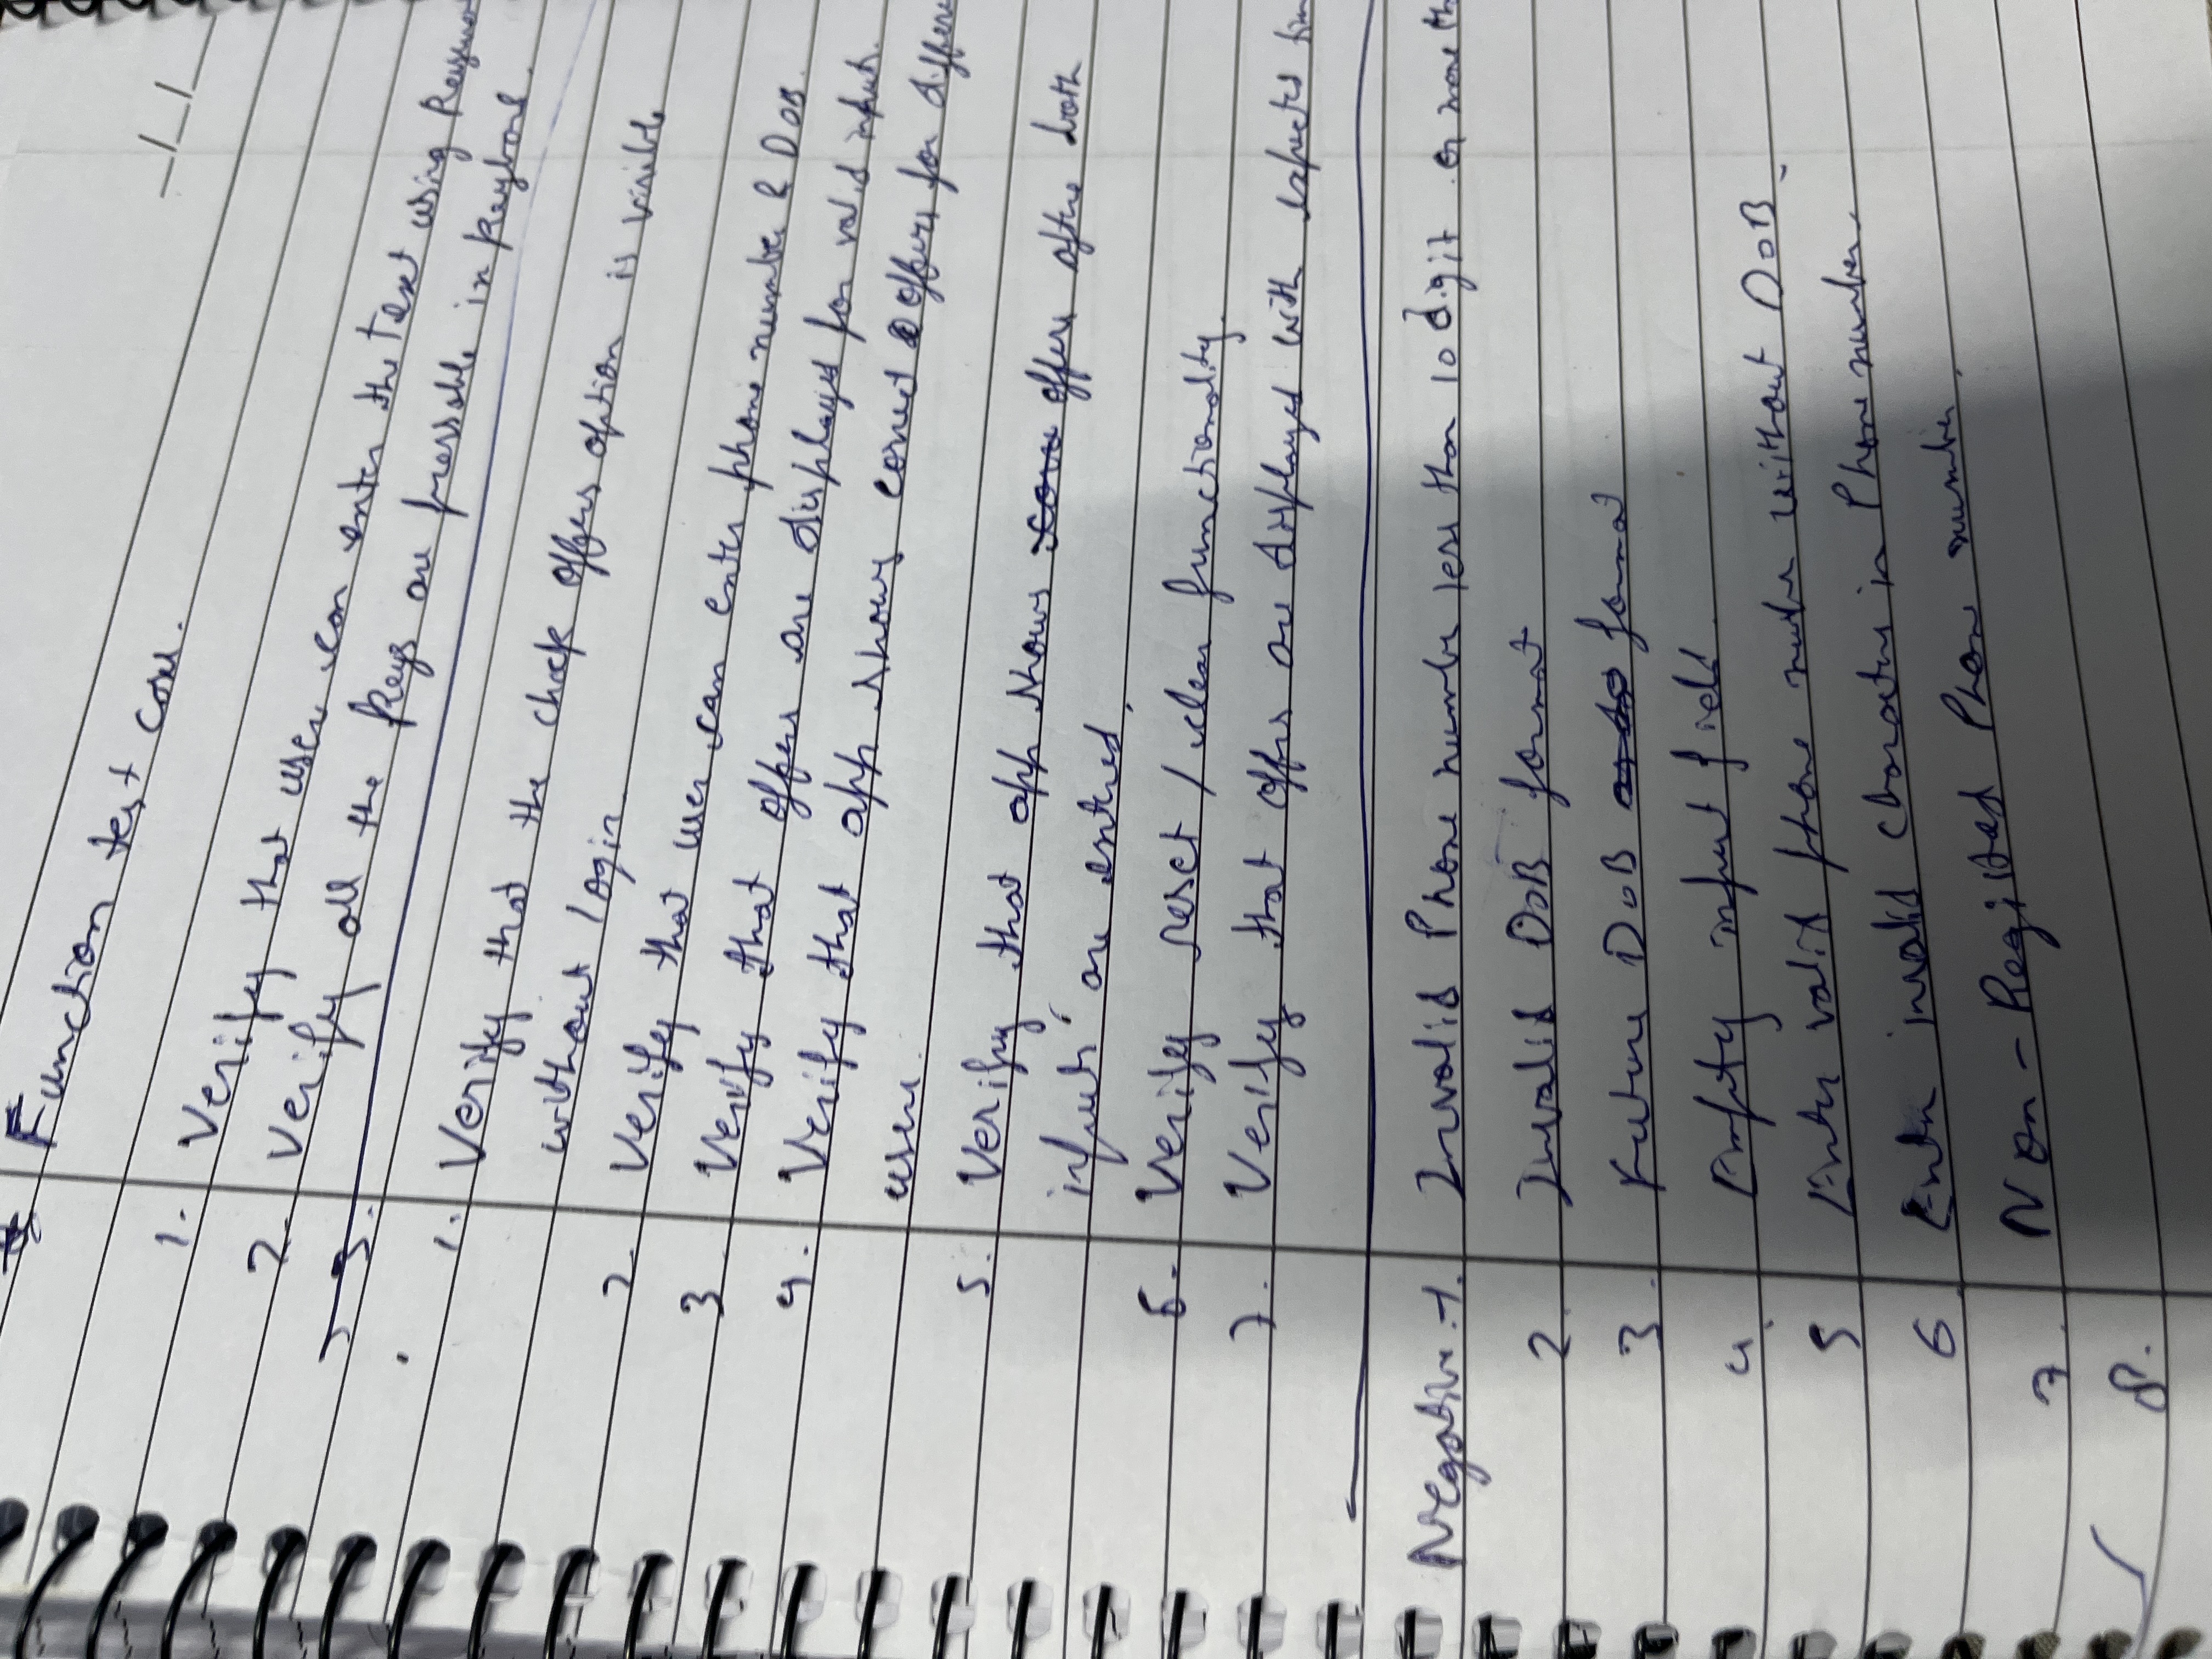 Function test case.
1. Verify that user can enter the text using
2. Verify all the keys are pressable in keyboard.
3.
1. Verify that the check offers option is visible
without login
2 Verify that user can enter phone number & DOB.
3 Verify that offers are displayed for valid input.
4. Verify that app shows correct offers for
users.
5. Verify that app shows offers after both
inputs are entered.
6. Verify reset / clear functionality.
7. Verify that offers are displayed with
Negative:-1. Invalid Phone number less than 10 digit or more
2. Invalid DOB format
3. Future DOB format
4. Empty input field.
5 Enter valid phone number without DOB
6 Enter invalid characters in Phone number.
7. Non-Registed Phone number.
8.